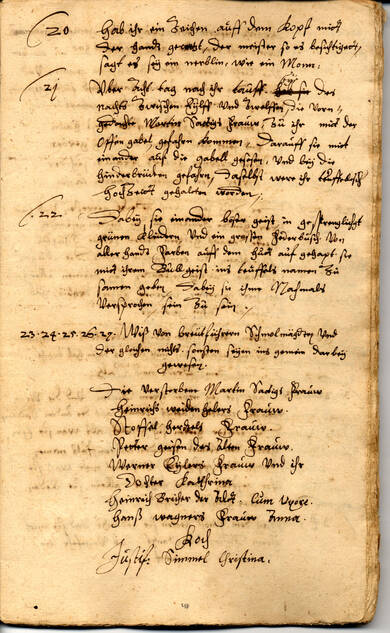 20 Hab ihr ein Zeichen auff dem Kopf mitt
der handt gemacht, der meister so es besichtiget,
sagt es sey ein nerblin, wie ein Mohn.
21 Uber acht tag nach ihr tauff hab sie des
nachts Zwischen Eylff und Zwelffen die Vorn-
gedachte Martin Sadigs frauw, Zu ihr mitt der
Offen gabel gefahren kommen, darauff sie mit
einander auf die gabell gesessen, und bey die
hinderbrücken gefahren, daselbst were ihr teuffelisch
Hochzeitt gehalten worden.
22 Dabey sie einander bösen geist in
grünen Kleidern, und ein grossen federbusch von
allerhandt farben auff dem Hutt auf gehapt sie
mit ihrem Bulgeist ins teuffels namen Zu
samen geben, dabey sie ihme Nachmals
Versprochen sein Zu sein.
23. 24. 25. 26. 27. Wiß von breutführern Schmelmägdten und
der gleichen nichts sonsten seyen ins gemein darbey
gewesen.
Die verstorbene Martin Sadigs frauw
Heinrichs weidenhelers frauw.
Stoffel frauw.
Petter geisen des alten frauw.
Werner Eylers frauw und ihr
dochter Kathrina
Heinrich Becher der alt. Cum Uxore.
Hanß wagners frauw Anna.
Koch
Justif: Simmel Christina.